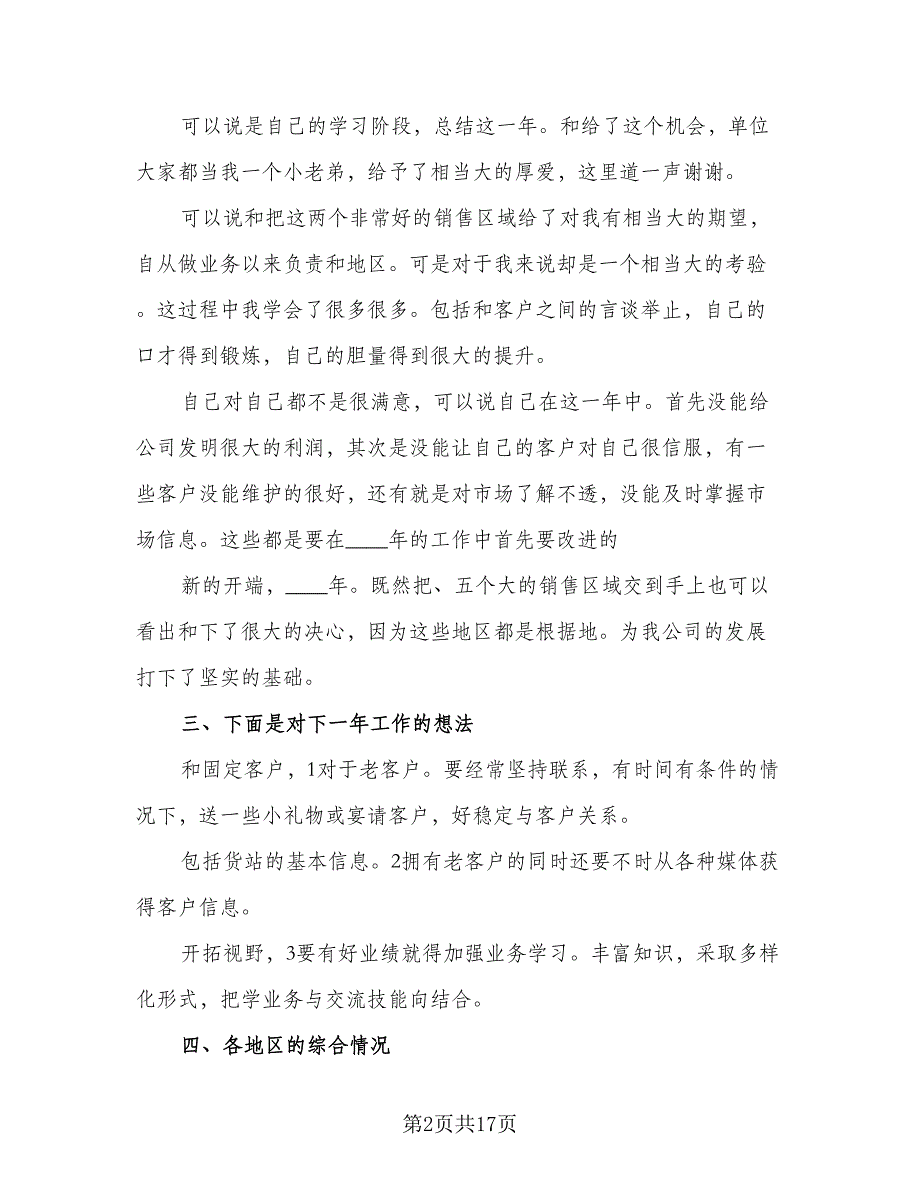 可以说是自己的学习阶段，总结这一年。和给了这个机会，单位
大家都当我一个小老弟，给予了相当大的厚爱，这里道一声谢谢。
可以说和把这两个非常好的销售区域给了对我有相当大的期望，
自从做业务以来负责和地区。可是对于我来说却是一个相当大的考验
。这过程中我学会了很多很多。包括和客户之间的言谈举止，自己的
口才得到锻炼，自己的胆量得到很大的提升。
自己对自己都不是很满意，可以说自己在这一年中。首先没能给
公司发明很大的利润，其次是没能让自己的客户对自己很信服，有一
些客户没能维护的很好，还有就是对市场了解不透，没能及时掌握市
场信息。这些都是要在____年的工作中首先要改进的
新的开端，____年。既然把、五个大的销售区域交到手上也可以
看出和下了很大的决心，因为这些地区都是根据地。为我公司的发展
打下了坚实的基础。
三、下面是对下一年工作的想法
和固定客户，1对于老客户。要经常坚持联系，有时间有条件的情
况下，送一些小礼物或宴请客户，好稳定与客户关系。
包括货站的基本信息。2拥有老客户的同时还要不时从各种媒体获
得客户信息。
开拓视野，3要有好业绩就得加强业务学习。丰富知识，采取多样
化形式，把学业务与交流技能向结合。
四、各地区的综合情况
第2页共17页